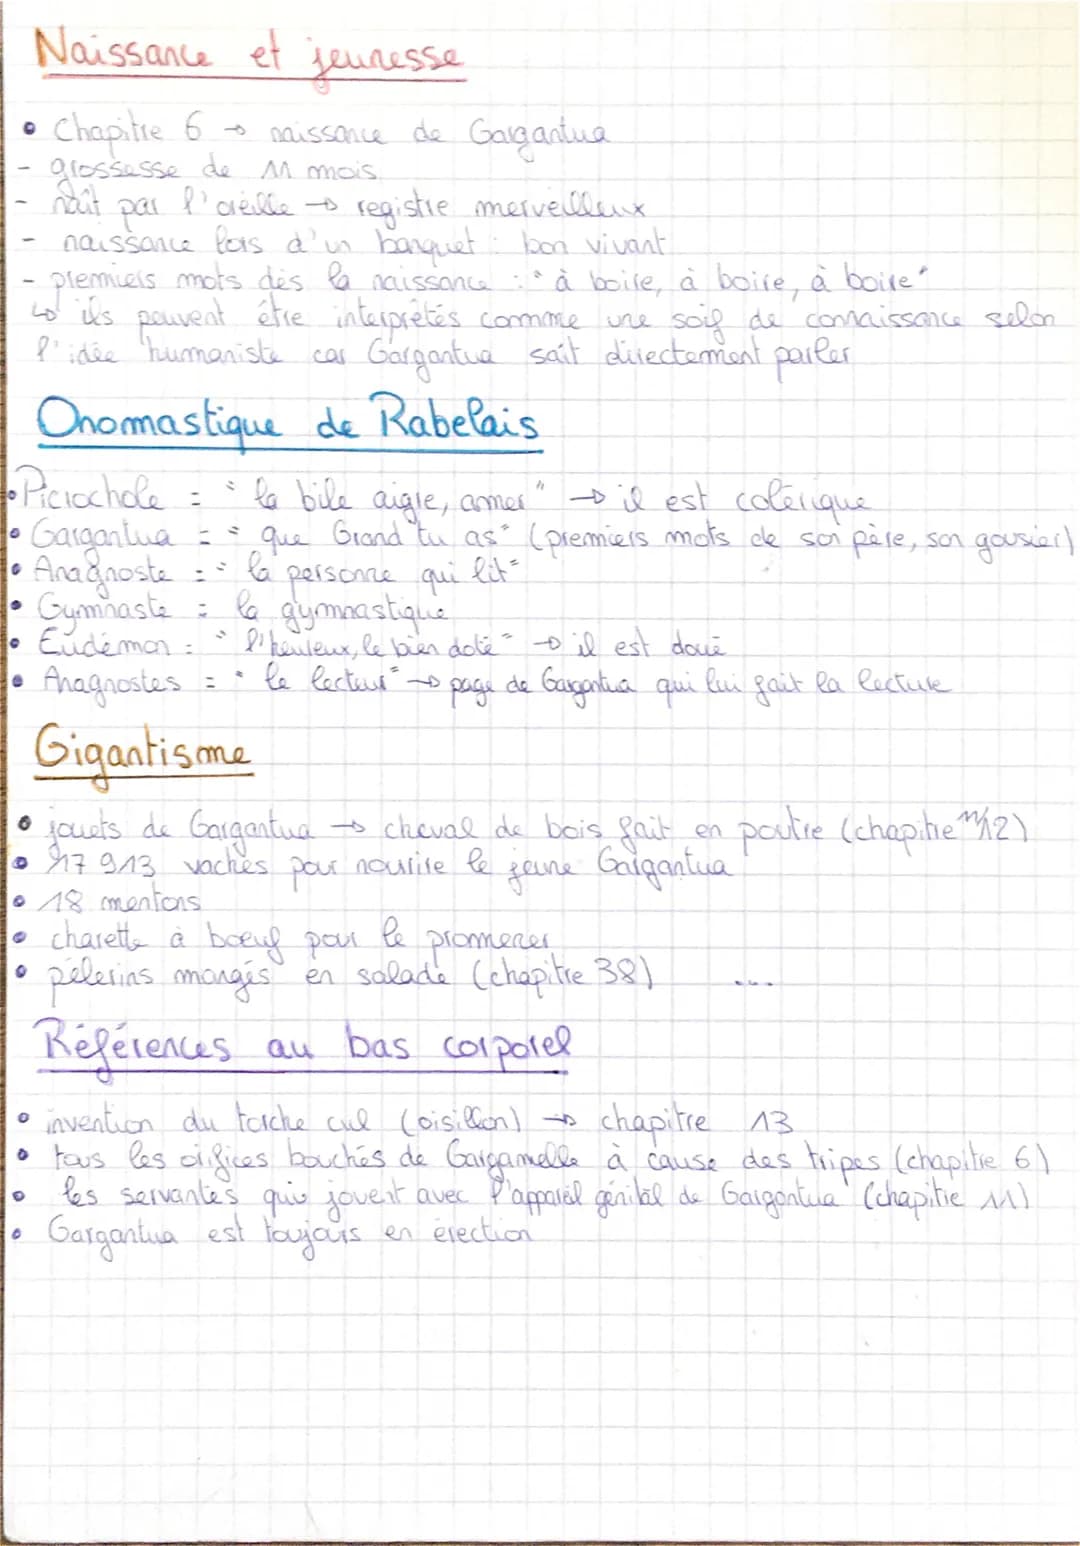 Naissance et jeunesse
• Chapitre 6 → naissance de Gargantua
- grossesse de 11 mois
- naît par l'oreille → registre merveilleux
- naissance lors d'un banquet : bon vivant
- premiers mots dès la naissance : "à boire, à boire, à boire"
↳ ils peuvent être interprétés comme une soif de connaissance selon
l'idée humaniste car Gargantua sait directement parler
Onomastique de Rabelais
• Picrochole = "la bile aigre, amer" → il est colérique
• Gargantua = "que Grand tu as" (premiers mots de son père, son gousier)
• Anagnoste = "la personne qui lit"
• Gymnaste = la gymnastique
• Eudémon = "l'heureux, le bien doté" → il est doué
• Anagnostes = "le lecteur" → page de Gargantua qui lui fait la lecture
Gigantisme
• jouets de Gargantua → cheval de bois fait en poutre (chapitre 11/12)
• 17 913 vaches pour nourire le jeune Gargantua
• 18 mentons
• charette à boeuf pour le promener
• pélerins mangés en salade (chapitre 38) ...
Références au bas corporel
• invention du torche cul (oisillon) → chapitre 13
• tous les orifices bouchés de Gargamelle à cause des tripes (chapitre 6)
• les servantes qui jouent avec l'appareil génital de Gargantua (chapitre 11)
• Gargantua est toujours en érection